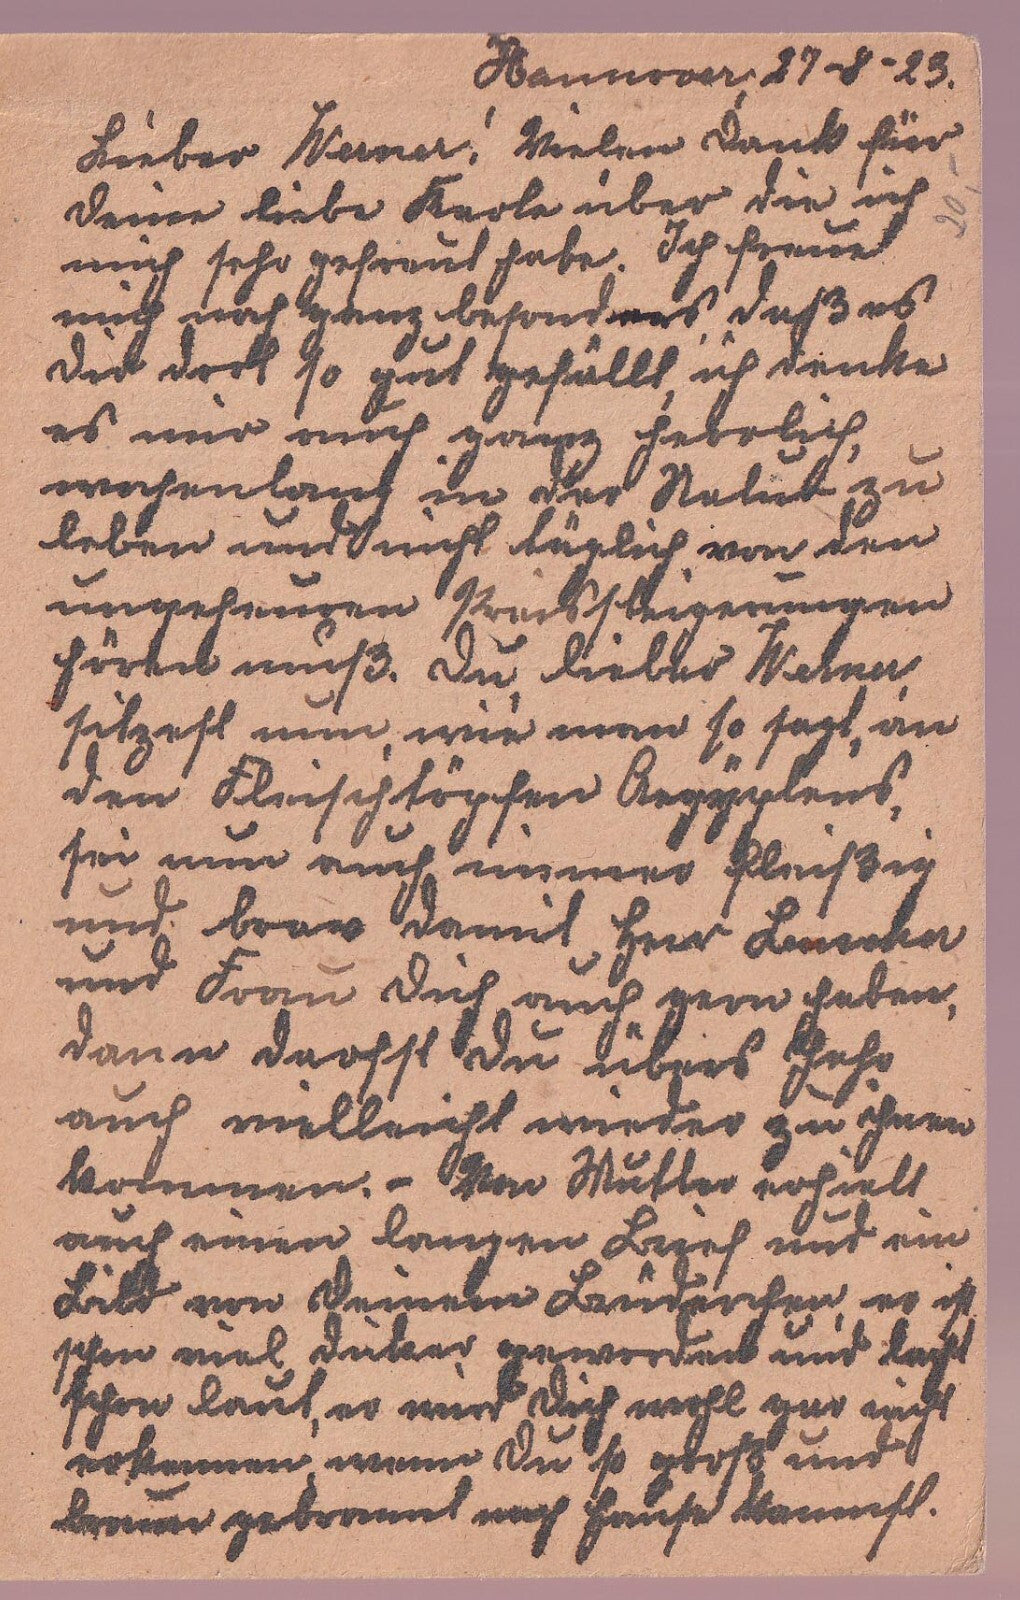 Hannover, 27-8-23.
Lieber Werner! Vielen Dank für
Deine liebe Karte über die ich
mich sehr gefreut habe. Ich freue
mich noch ganz besonders, daß es
Dir dort so gut gefällt, ich denke
es mir auch ganz herrlich,
wochenlang in der Natur zu
leben und nicht täglich von den
ungeheuren Preissteigerungen
hören muß. Du, lieber Werner,
sitzest nun, wie man so sagt, an
den Fleischtöpfen Aegyptens,
sei nun auch immer fleißig
und brav damit Herr
und Frau Dich auch gern haben,
dann darfst Du übers Jahr
auch vielleicht wieder zu ihnen
kommen. - Von Mutter erhielt
auch einen langen Brief und ein
Bild von Deinem Brüderchen, er ist
schon viel dicker geworden und lacht
schon laut, er wird Dich wohl gar nicht
erkennen, wenn Du so groß und
braun gebrannt nach Hause kommst.
20,-